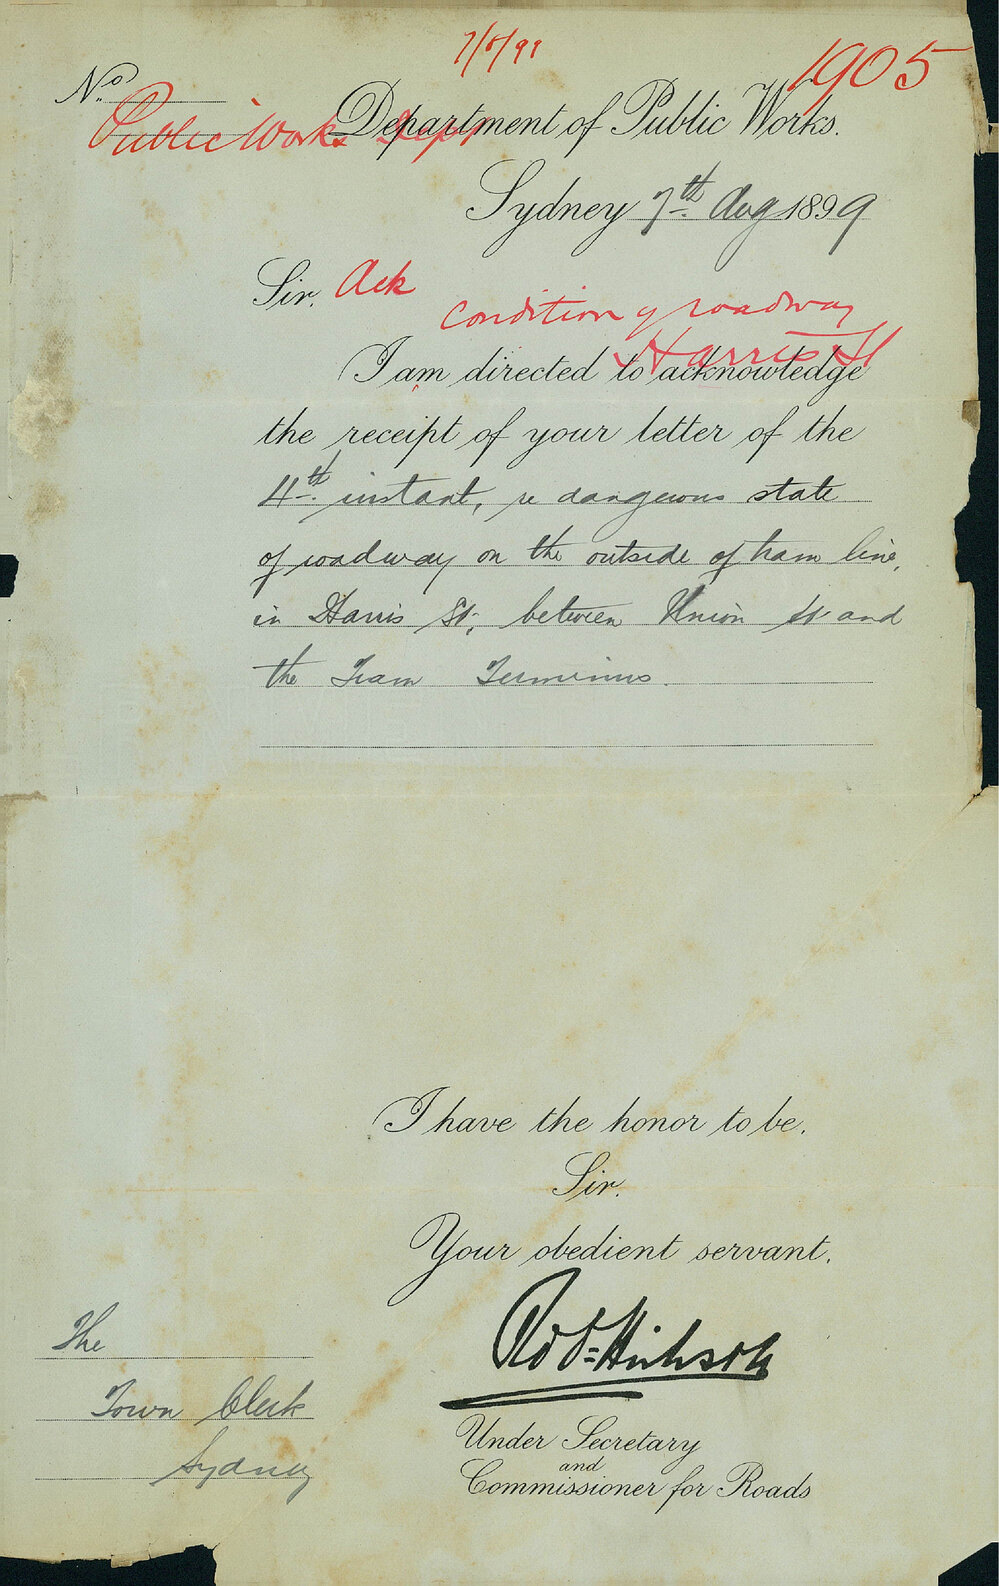 7/8/99
1905
No.
Department of Public Works.
Public Works Dept
Sydney 7th Aug 1899
Sir, Ack
Condition of roadway
Harris St
I am directed to acknowledge
the receipt of your letter of the
4th instant, re dangerous state
of roadway on the outside of tram line,
in Harris St, between Union St and
the Tram Terminus.
I have the honor to be,
Sir,
Your obedient servant,
Robt Hickson
Under Secretary
and
Commissioner for Roads
The
Town Clerk
Sydney